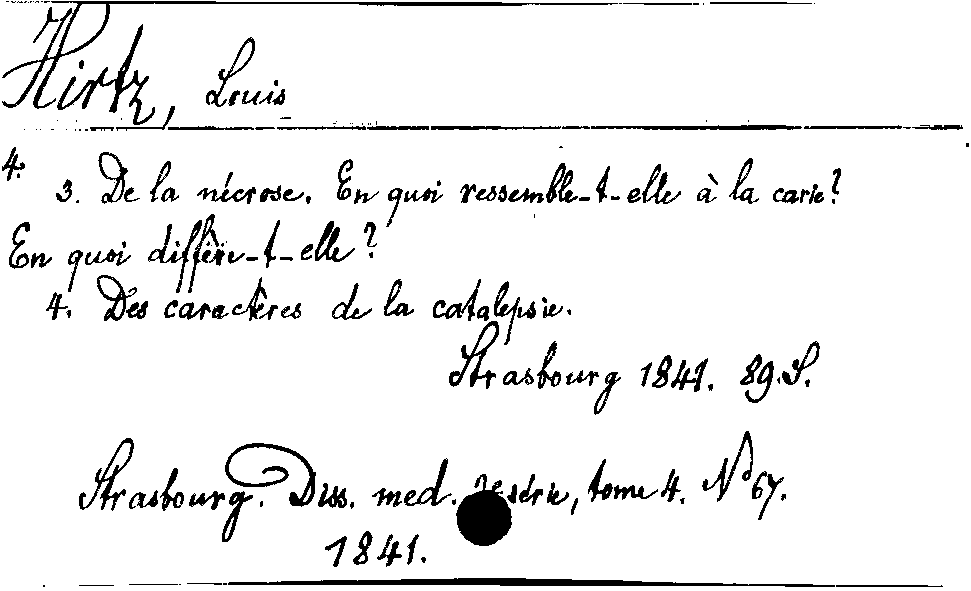 Hirtz, Louis
4.
3. De la nécrose. En quoi ressemble-t-elle à la carie?
En quoi diffère-t-elle?
4. Des caractères de la catalepsie.
Strasbourg 1841. 89.S.
Strasbourg. Diss. med. 2e série, tome 4. No 67.
1841.